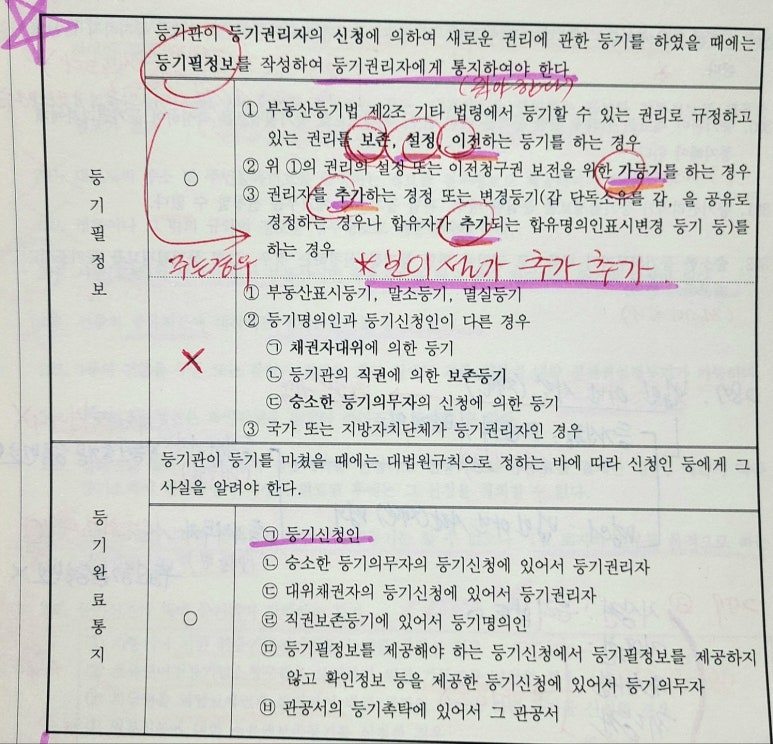 등기관이 등기권리자의 신청에 의하여 새로운 권리에 관한 등기를 하였을 때에는
등기필정보를 작성하여 등기권리자에게 통지하여야 한다
(줘야 한다)
등기필정보
○
① 부동산등기법 제2조 기타 법령에서 등기할 수 있는 권리로 규정하고
있는 권리를 보존, 설정, 이전하는 등기를 하는 경우
② 위 ①의 권리의 설정 또는 이전청구권 보전을 위한 가등기를 하는 경우
③ 권리자를 추가하는 경정 또는 변경등기(갑 단독소유를 갑, 을 공유로
경정하는 경우나 합유자가 추가되는 합유명의인표시변경 등기 등)를
하는 경우
주는경우
*보이설가 추가 추가
×
① 부동산표시등기, 말소등기, 멸실등기
② 등기명의인과 등기신청인이 다른 경우
㉠ 채권자대위에 의한 등기
㉡ 등기관의 직권에 의한 보존등기
㉢ 승소한 등기의무자의 신청에 의한 등기
③ 국가 또는 지방자치단체가 등기권리자인 경우
등기완료통지
등기관이 등기를 마쳤을 때에는 대법원규칙으로 정하는 바에 따라 신청인 등에게 그
사실을 알려야 한다.
○
㉠ 등기신청인
㉡ 승소한 등기의무자의 등기신청에 있어서 등기권리자
㉢ 대위채권자의 등기신청에 있어서 등기권리자
㉣ 직권보존등기에 있어서 등기명의인
㉤ 등기필정보를 제공해야 하는 등기신청에서 등기필정보를 제공하지
않고 확인정보 등을 제공한 등기신청에 있어서 등기의무자
㉥ 관공서의 등기촉탁에 있어서 그 관공서